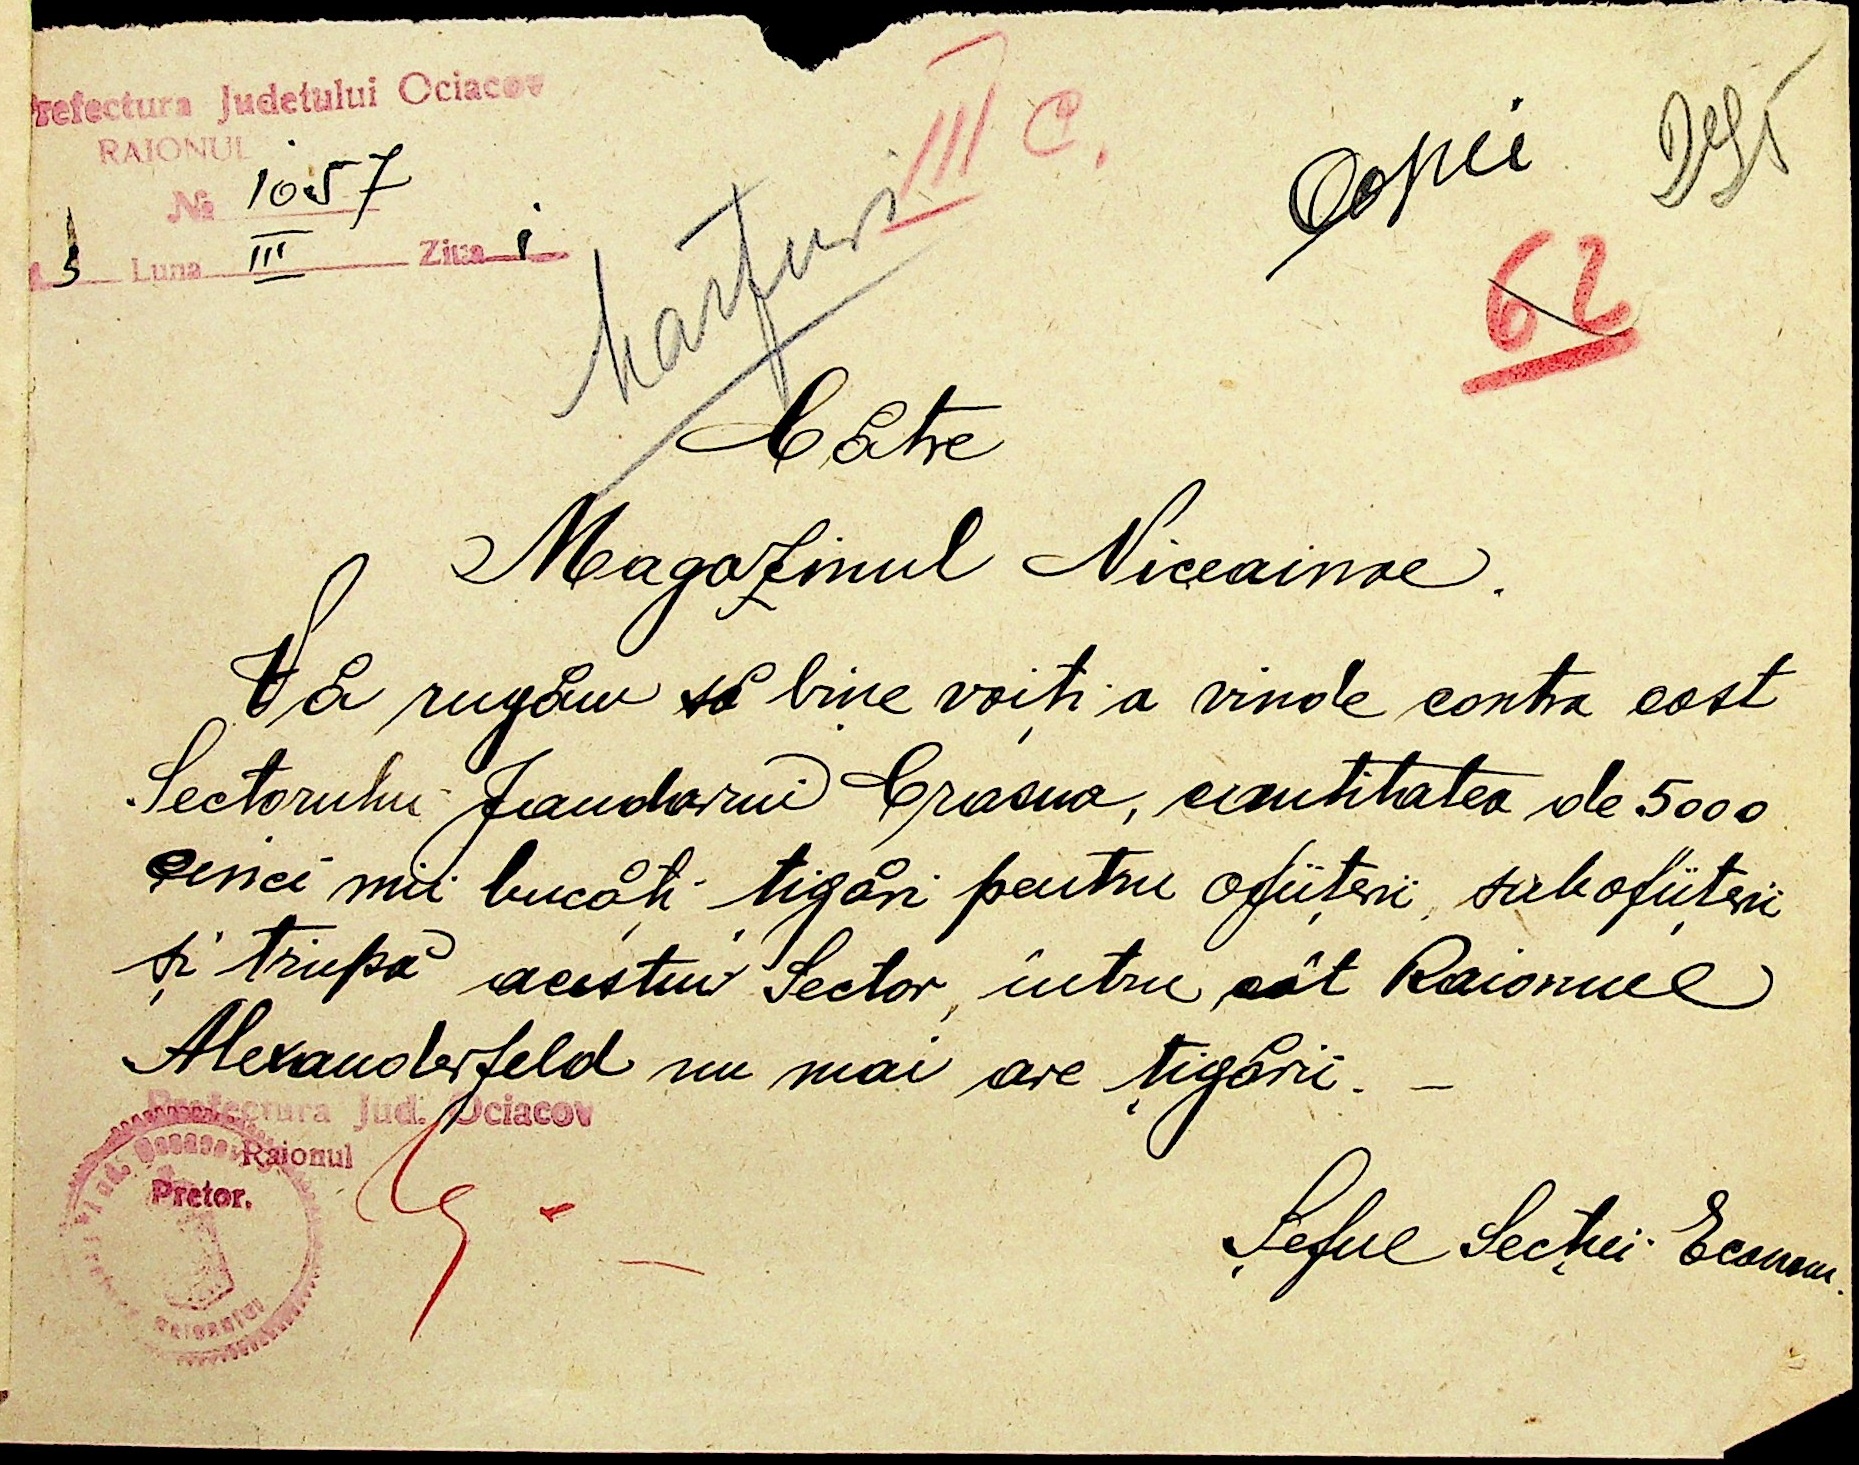 Prefectura Judetului Ociacov
RAIONUL
№ 1057
3 Luna III Ziua 1
III C.
Copii
62
Către
Magazinul Niceainoe.
Vă rugăm să bine voiți a vinde contra cost
Sectorului Jandarmi Crasna, cantitatea de 5000
cinci mii bucăți tigări pentru ofiițerii, subofiițerii
și trupă acestui Sector, întru cât Raionul
Alexanderfeld nu mai are țigării. —
Prefectura Jud. Ociacov
Raionul
Pretor.
Șeful Secției Econom.